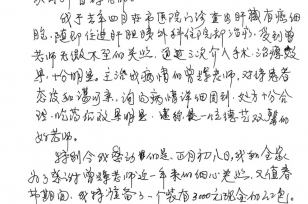 我于去年四月在市医院门诊查出肝脏有癌细
胞,随即住进肝胆胰外科住院部治疗,受到曾
老师无微不至的关照,通过三次介入手术,治疗效
果十分明显。主治我病情的曾老师,对待患者
态度和蔼可亲,询问病情详细周到,处方十分合
理,吃药的效果明显,堪称是一位德艺双馨的
好老师。
特别令我感动的是,正月初八日,我和全家
为了感谢曾老师近一年来的细心关照,又值春
节期间,我特准备了一个装有3000元现金的红包。